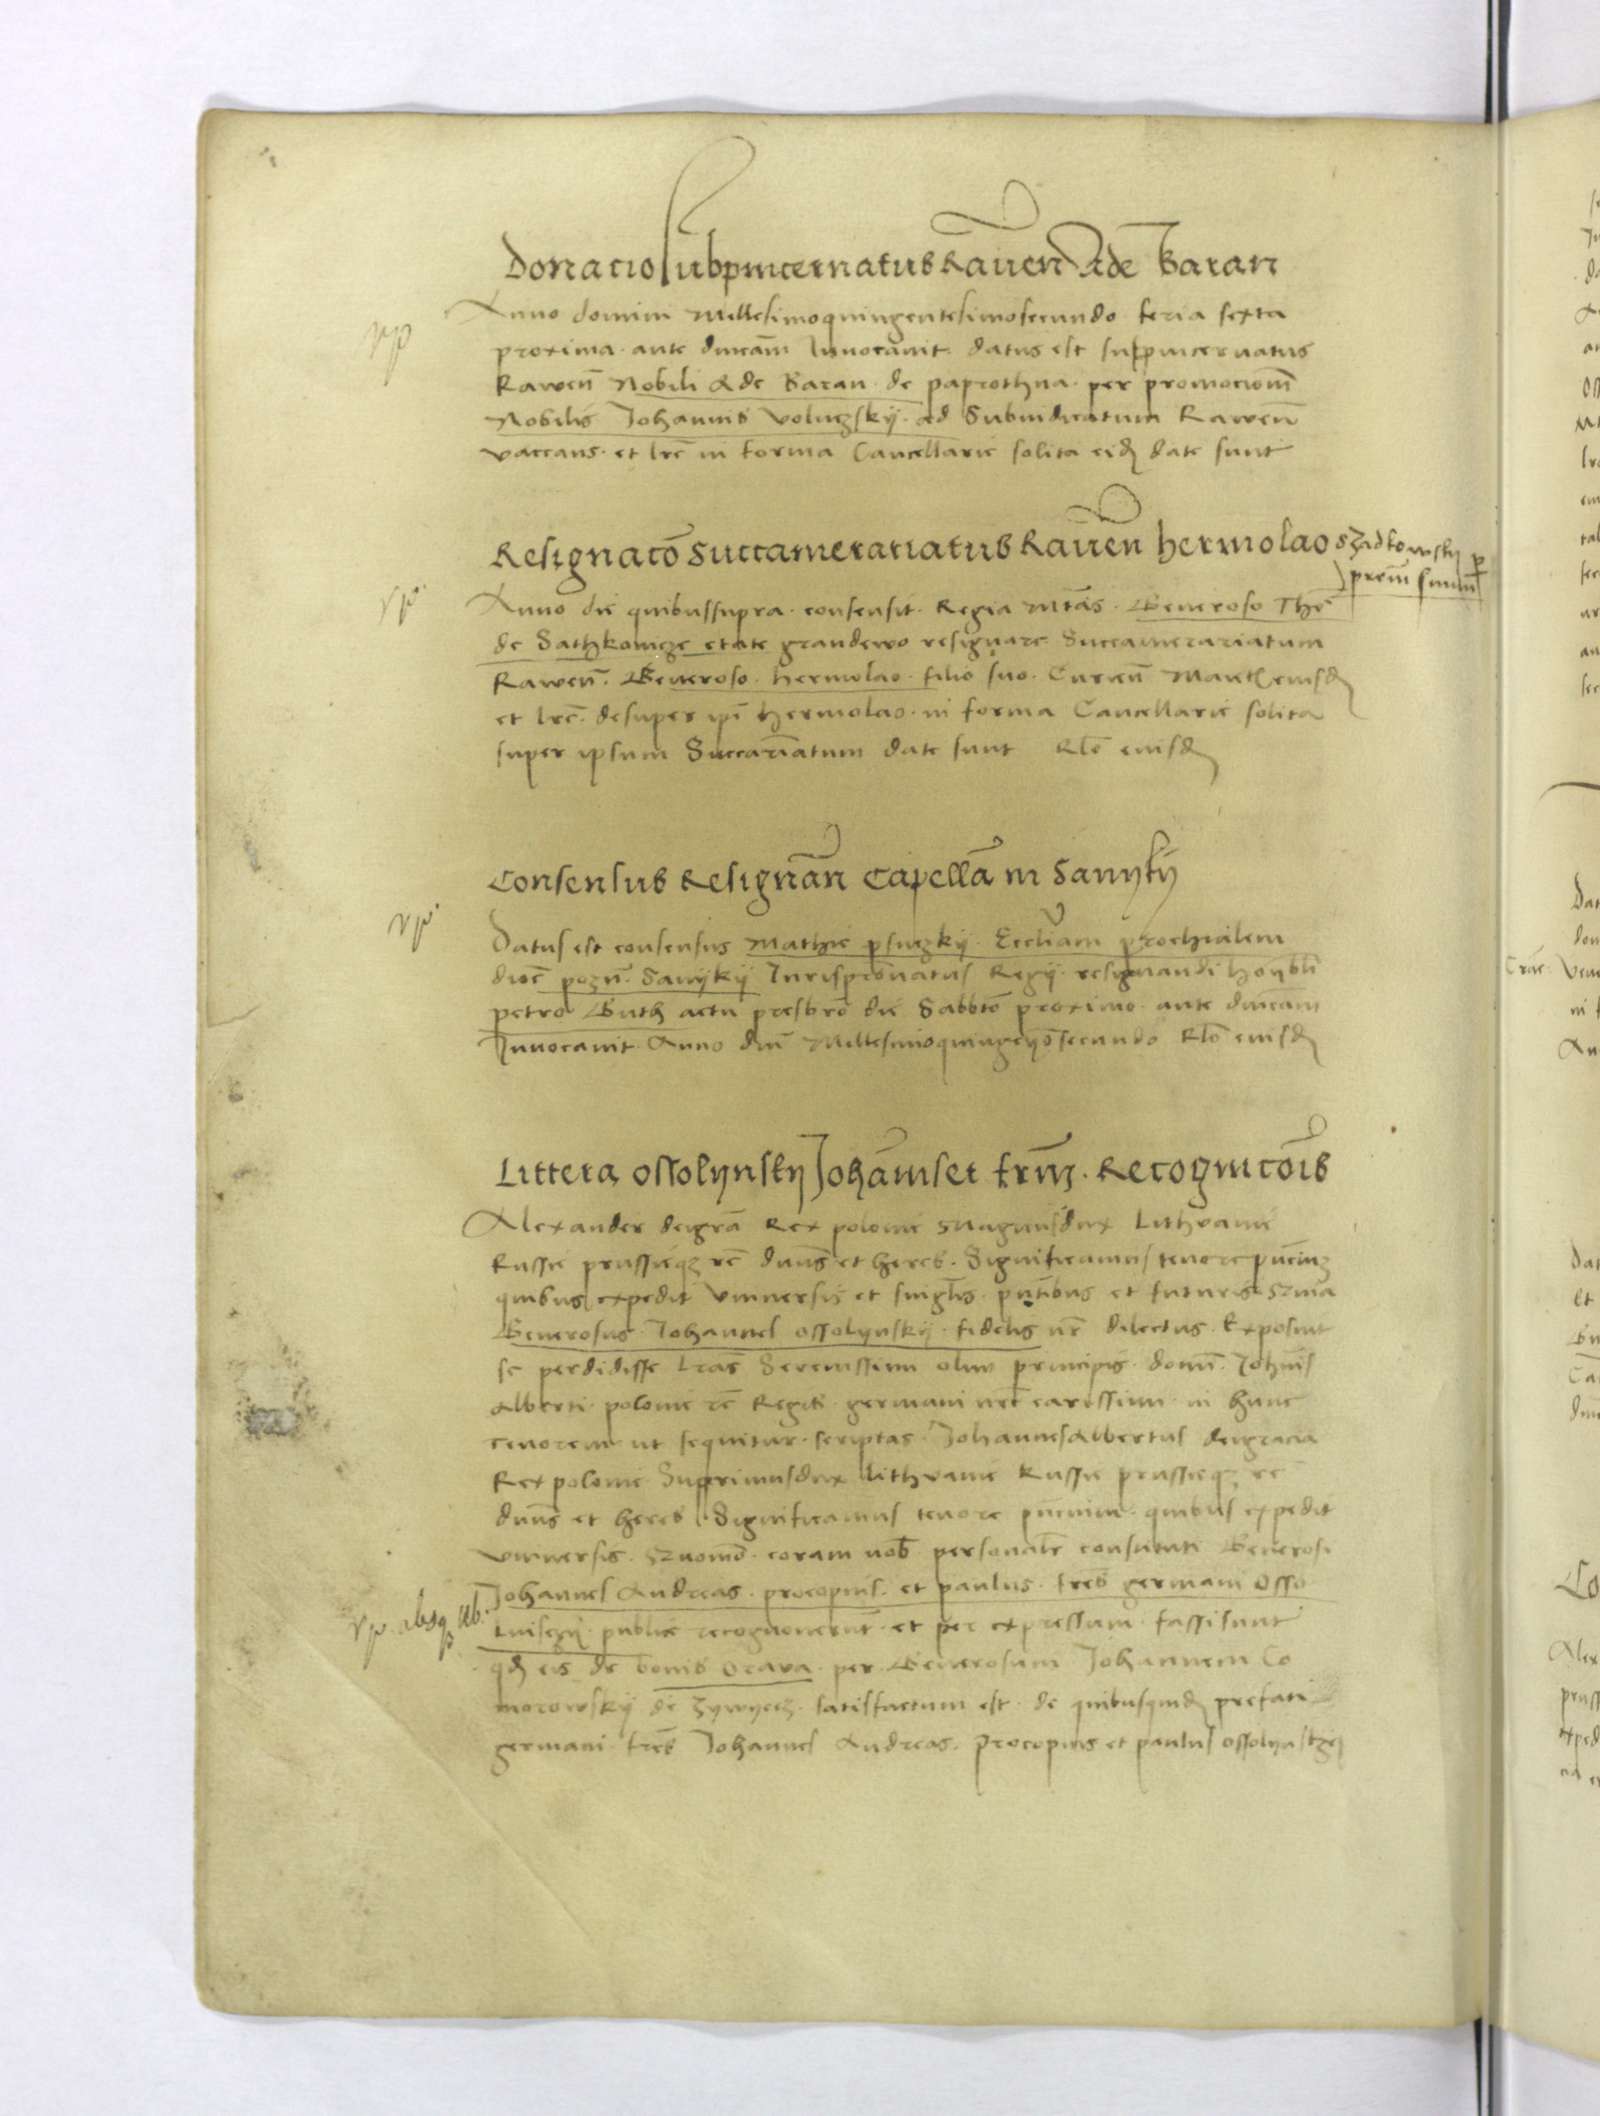 Donacio subpincernatus Raven Ade Baran
Anno domini Millesimoquingentesimosecundo feria sexta
proxima ante dnicam Invocavit datus est suppincernatus
Rawen Nobili A de Baran de paprothna per promocionem
Nobilis Johannis Voluczskij ad Subiudicatum Rawen
vaccans et lre in forma Cancellarie solita eidem date sunt
Resignaco Succamerariatus Raven hermolao Szadkowskij per
prem suum
Anno die quibussupra consensit Regia Mtas Generoso Tho
de Sathkowicze etate grandevo resignare Succamerariatum
Rawen Generoso hermolao filio suo Curien Mauth eiusd
et lre desuper ipi hermolao in forma Cancellarie solita
super ipsum Succariatum date sunt Rlo eiusd
Consensus Resignan Capellam in Savijkij
Datus est consensus Mathie Ecctiam prochialem
dioc pozn Savijkij Jurispronatus Regij resignandi honbli
petro Guth actu presbro die Sabbto proximo ante dnicam
Invocavit Anno dni Millesimoquingemosecundo Rlo eiusd
Littera ossolijnskij Johannis et frum Recognicois
Alexander deigra Rex polonie Magnusdux Lithvanie
Russie prussieqz rc dnus et heres Significamus tenore pncium
quibus expedit vniversis et singlis pntibus et futuris
Generosus Johannes ossolijnskij fidelis nr dilectus Exposuit
se perdidisse lras Serenissimi olim principis domi Johnis
Alberti polonie rc Regis germani nri carissimi in hunc
tenorem ut sequitur scriptas Johannes Albertus deigracia
Rex polonie Supremusdux lithvanie Russie prussieqz rc
dnus et heres Significamus tenore pncium quibus expedit
vniversis coram nob personalr constituti Generosi
Johannes Andreas procopius et paulus fres germani Osso
publice recognoverunt et per expressum fassi sunt
vp absq
qd eis de bonis Orava per Generosum Johannem Co
morowskij de Zywyecz satisfactum est de quibusquid prefati
germani fres Johannes Andreas procopius et paulus